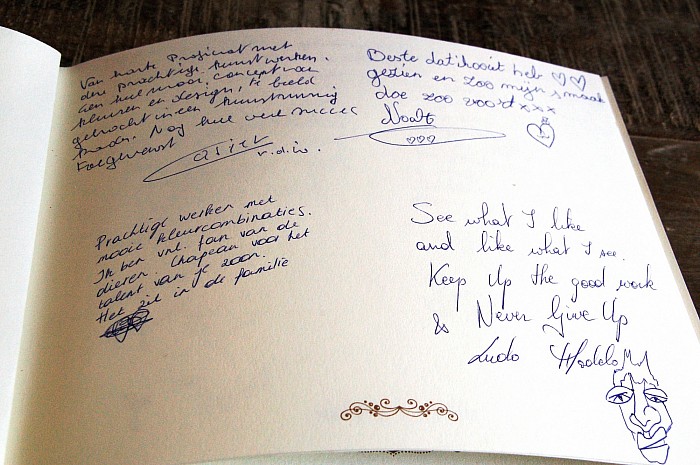 Van harte Proficiat met
deze prachtige kunstwerken.
Een heel mooi concept van
kleuren en design, te beeld
gebracht in een
Nog heel veel succes
toegewenst
v.d.w.
Beste dat ik ooit heb
gezien en zoo mijn smaak
doe zoo voort xxx
Prachtige werken met
mooie kleurcombinaties.
Ik ben vnl. fan van de
dieren. Chapeau voor het
talent van je zoon.
Het zit in de familie
See what I like
and like what I see.
Keep Up the good work
& Never Give Up
Ludo